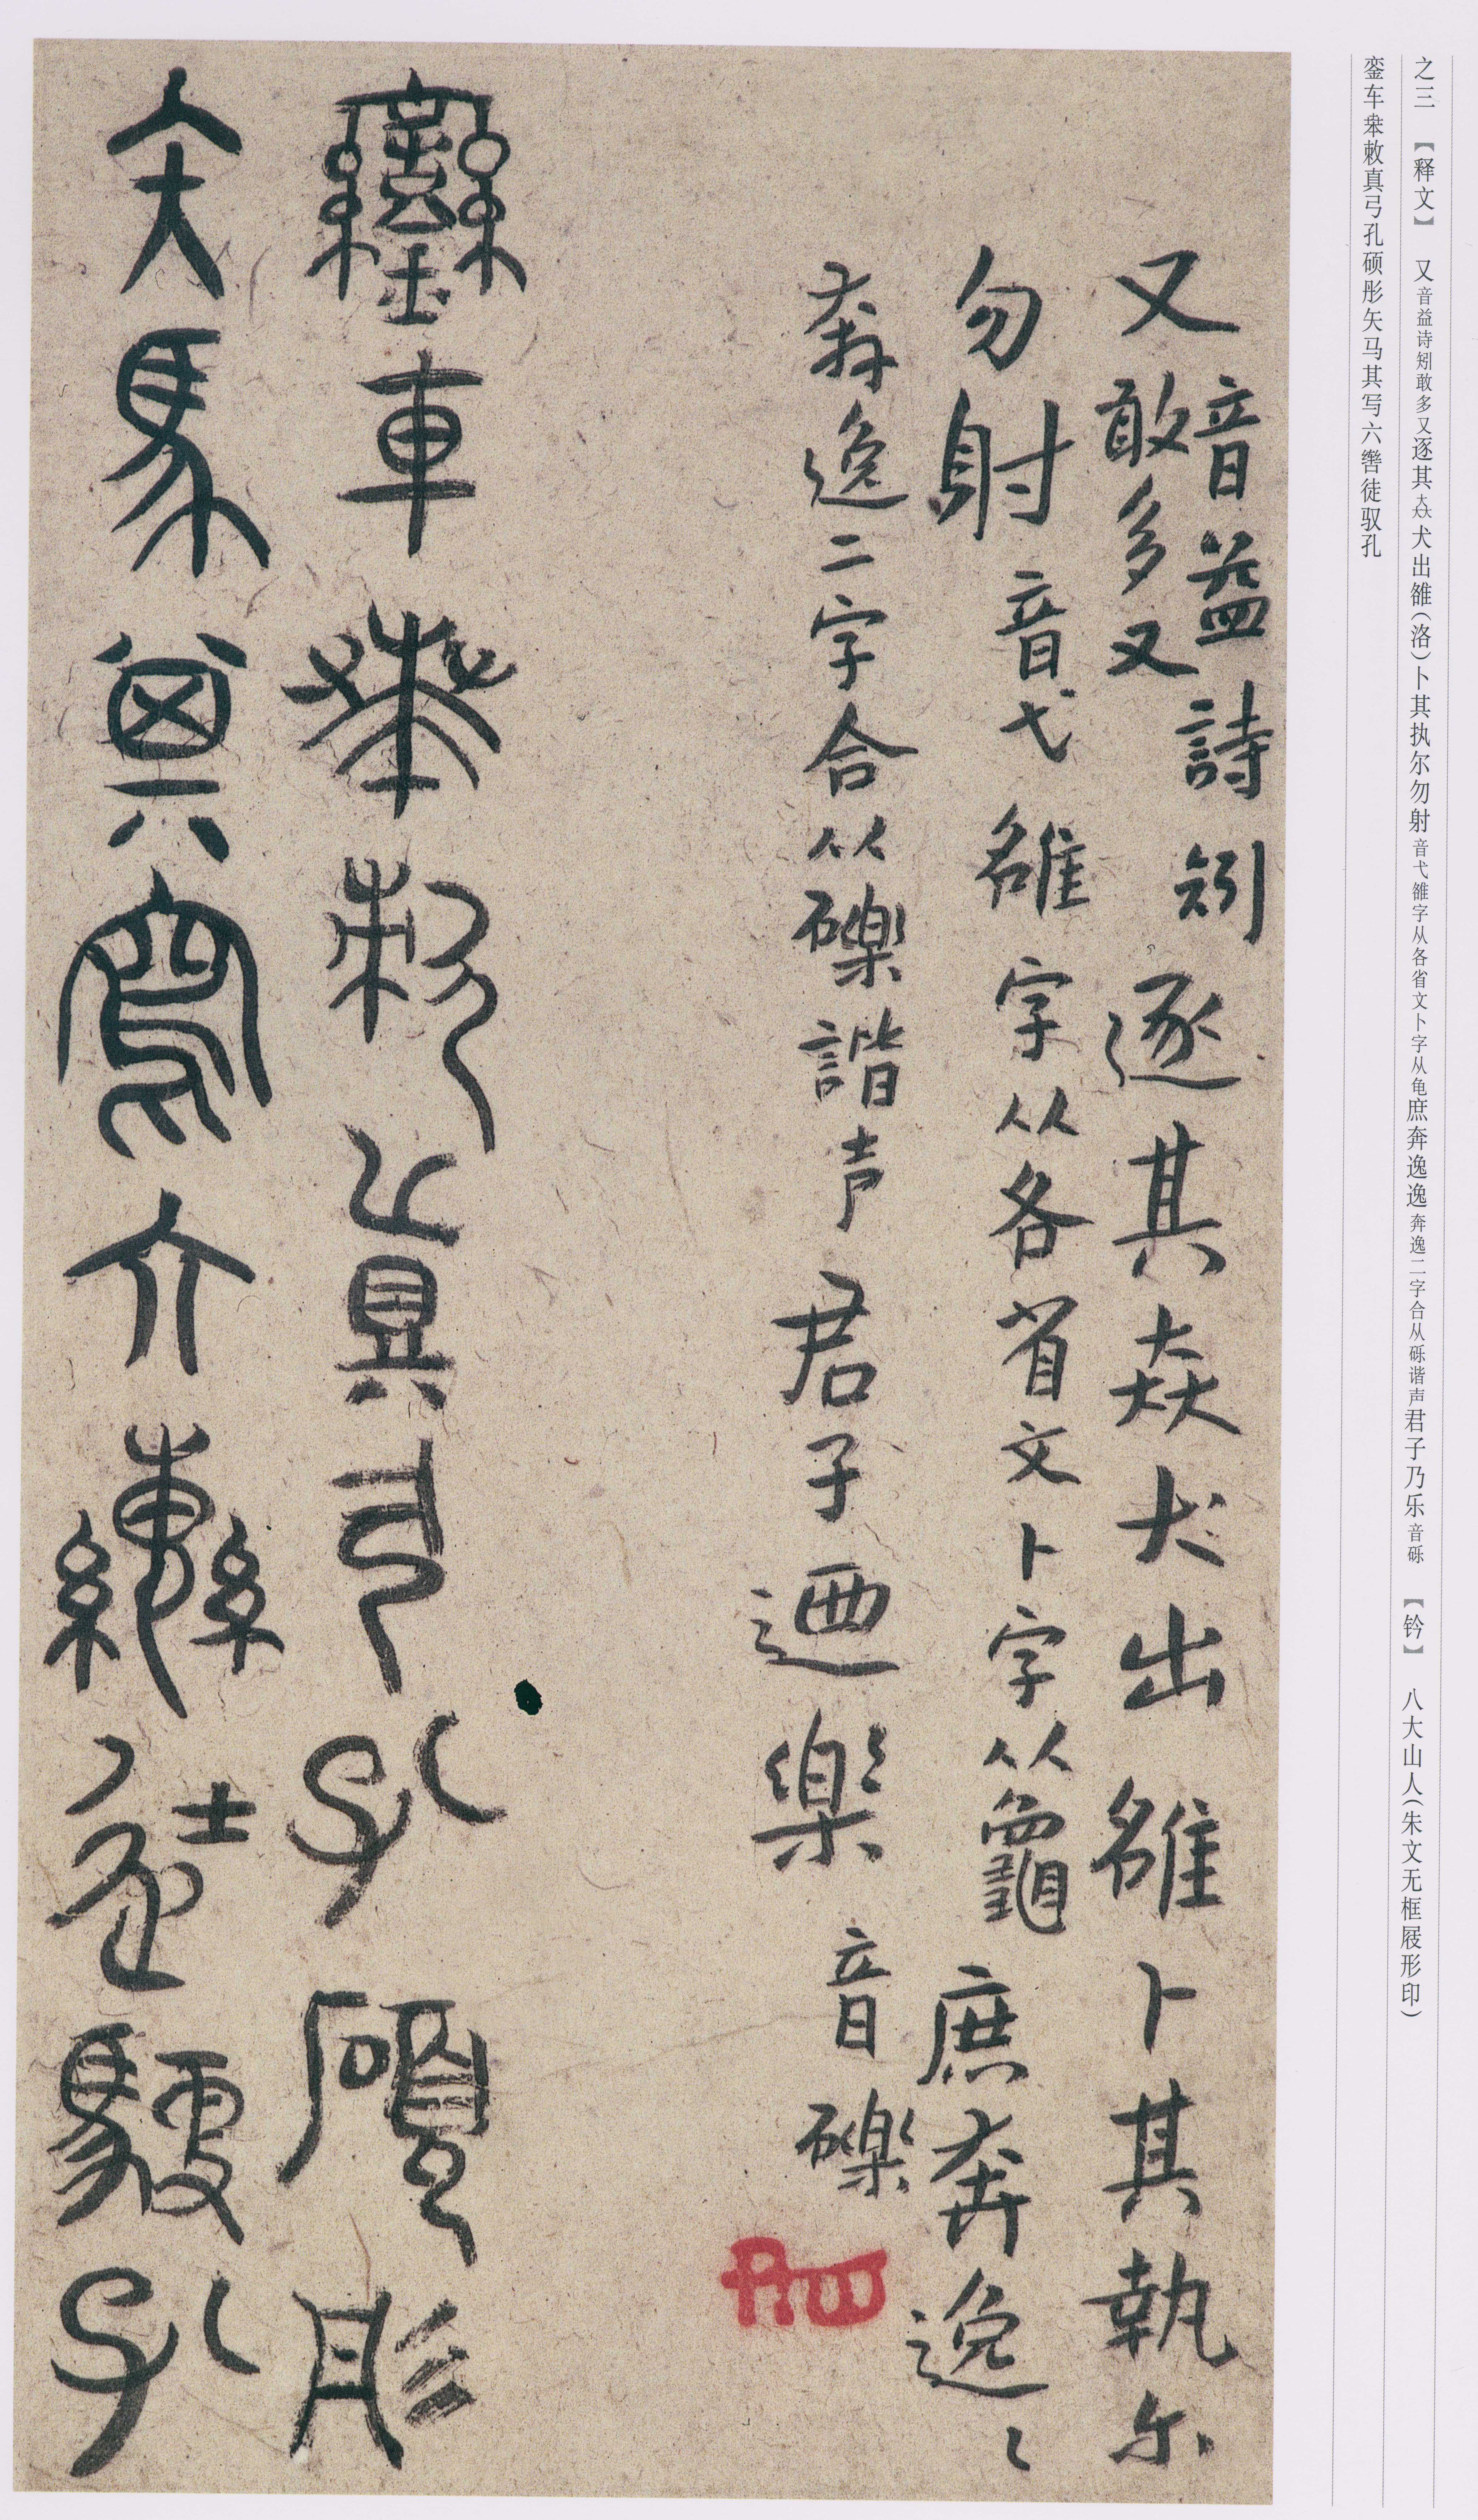 之三 【释文】 又音益诗矧敢多又逐其犬出雒(洛)卜其执尔勿射音弋雒字从各省文卜字从龟庶奔逸逸奔逸二字合从砾谐声君子乃乐音砾 【钤】 八大山人(朱文无框屐形印)
銮车敕真弓孔硕彤矢马其写六辔徒驭孔
又音益詩矧敢多又逐其猋犬出雒卜其執尔
勿射音弋雒字从各省文卜字从龜庶奔逸〻
奔逸二字合从礫諧声君子迺樂音礫
鑾車𠦪敕真弓孔碩彤
矢馬其寫六轡徒馭孔